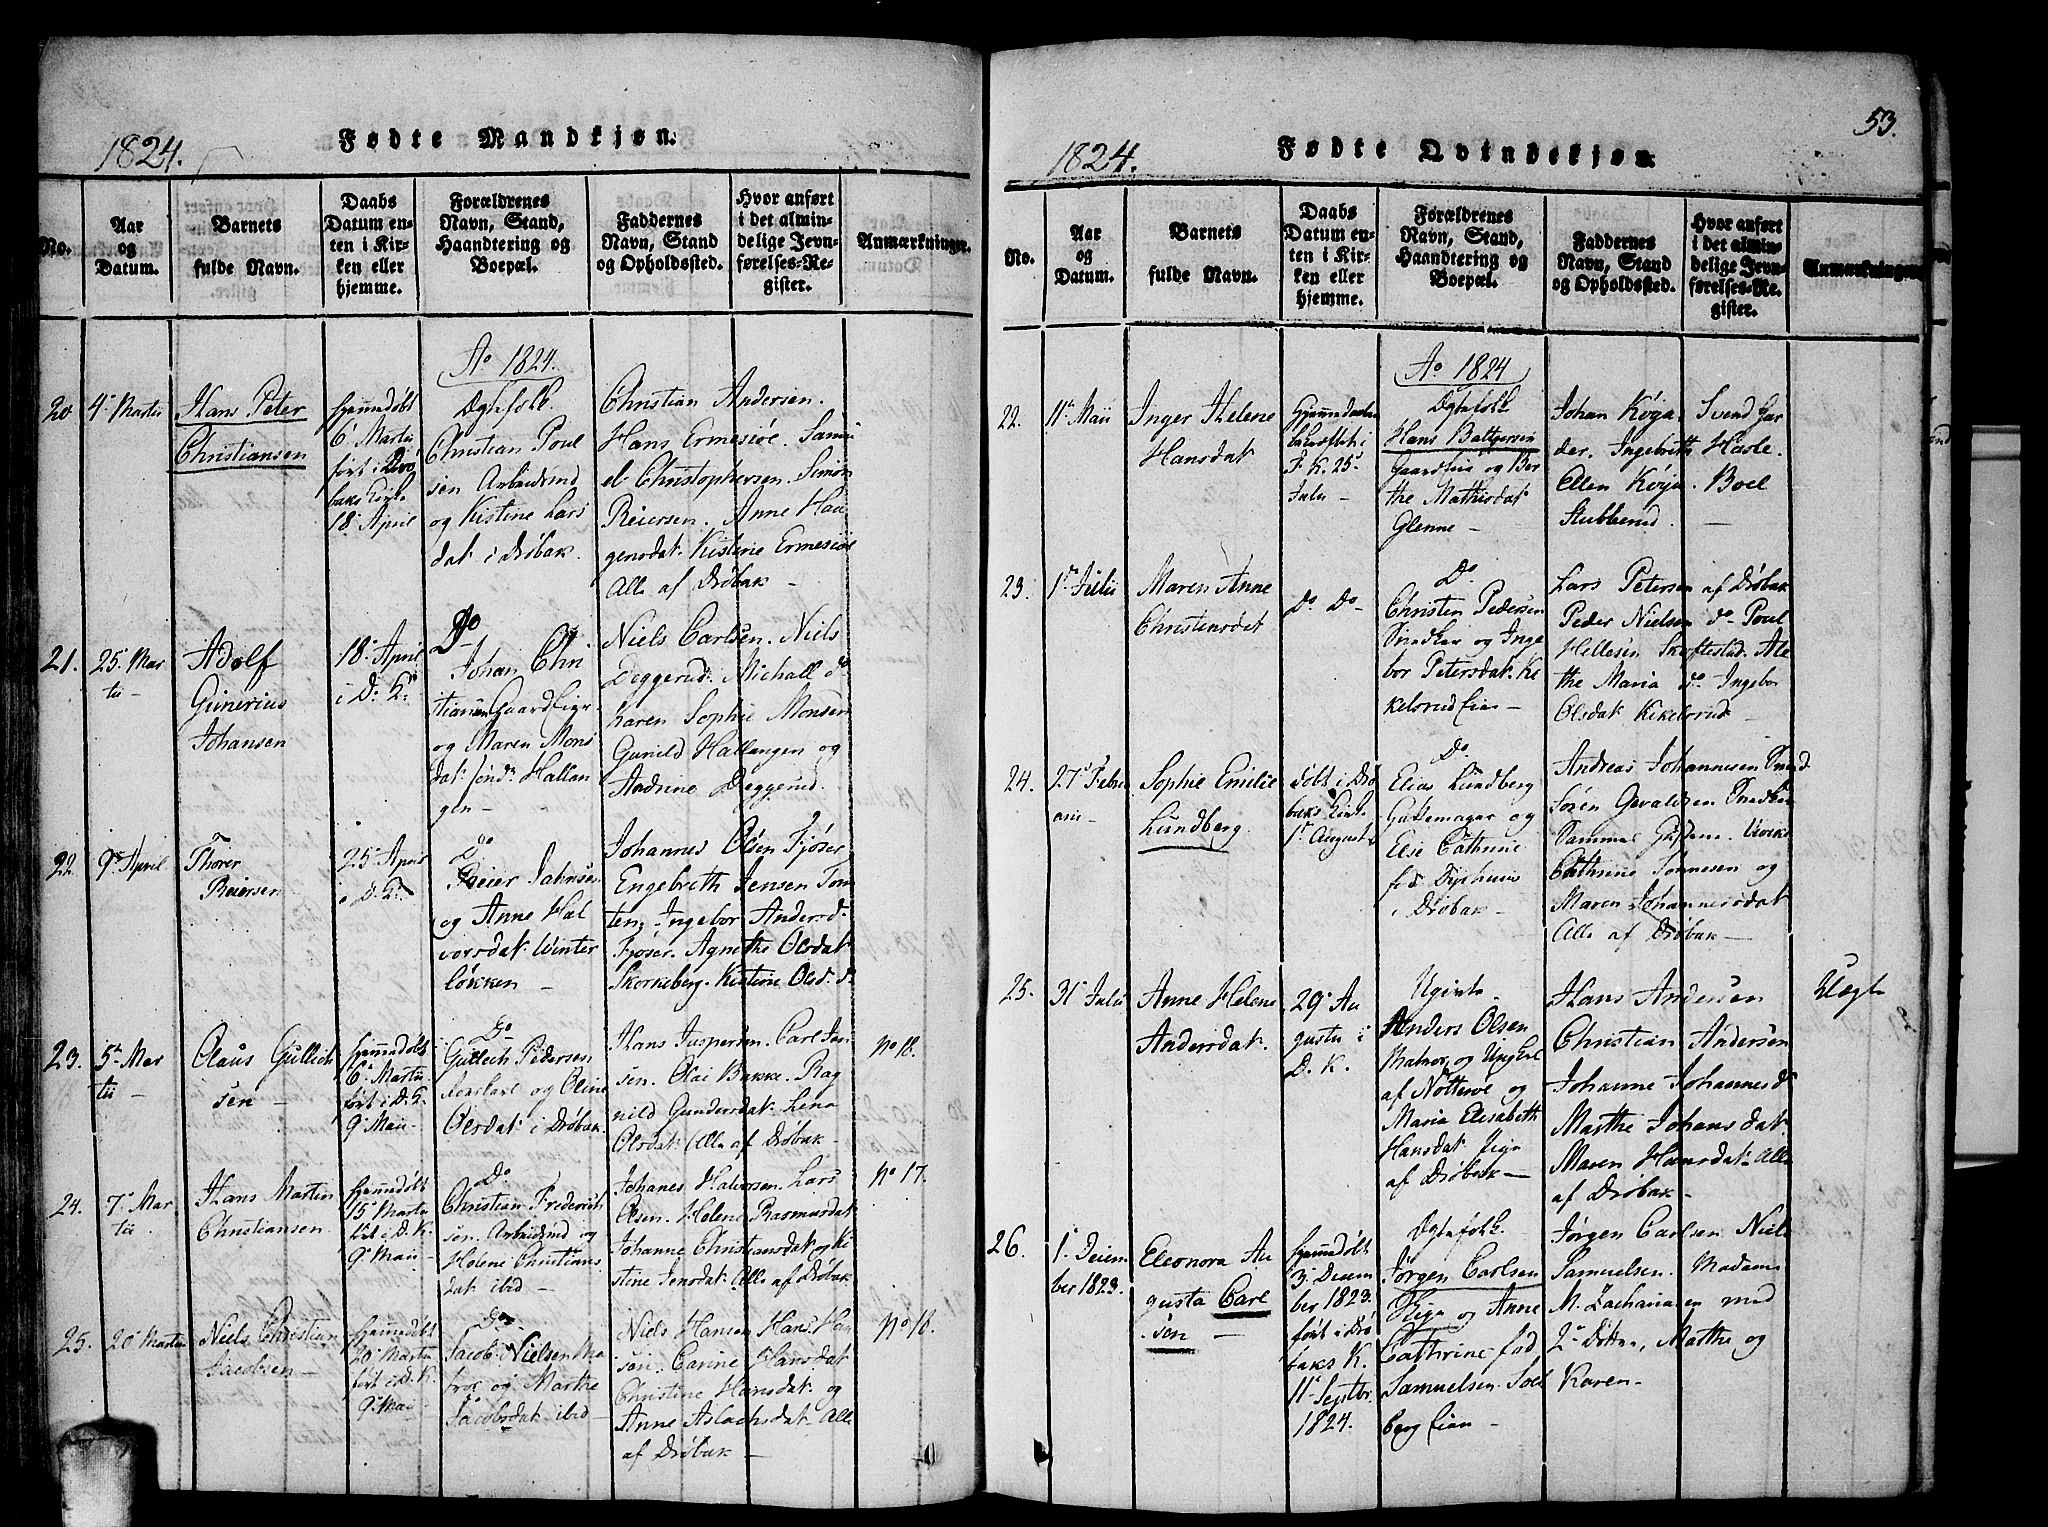 1824.
Fødte Mandkjøn.
No.
Aar
og
Datum.
Barnets
fulde Navn.
Daabs
Datum en-
ten i Kir-
ken eller
hjemme.
Forældrenes
Navn, Stand,
Haandtering og
Boepæl.
Faddernes
Navn, Stand
og Opholdssted.
Hvor anført
i det almin-
delige Jevn-
førelses-Re-
gister.
Anmærkninger.
Ao 1824.
20
4de Martii
Hans Peter
Christiansen
hjemmedøbt
6 Martii
ført i Drø
baks Kirke
18 April
Ægtefolk.
Christian Poul
sen Arbeidsmd
og Kistine Lars
dat i Drøbak.
Christian Andersen.
Hans Ermesiøe. Samu
el Christophersen. Simon
Reiersen. Anne Hau
gensdat. Kistine Ermesiøe
Alle af Drøbak -
21.
25 Mar
tii -
Adolf
Gunerius
Johansen
18 April
i D. K.
Do
Johan Chri
stiansen Gaard Eier
og Maren Mons
dat. søndr Hallan
gen -
Niels Carlsen. Niels
Deggerud. Michall do
Karen Sophie Monsen
Gunild Hallangen og
Andrine Deggerud.
22
9 April
Thorer
Reiersen
25 April
i D. K.
Do
Reier Jahnsen
og Anne Hal
vorsdat. Winter
løkken -
Johannes Olsen Fjøser
Engebreth Jensen Tom
ten. Ingebor Andersd.
Fjøser. Agnethe Olsdat
Skorkeberg. Kistine Olsd. do
23.
5 Mar
tii -
Olaus Gullich
sen -
hjemmedøbt
6 Martii
ført i D. K.
9 Maii -
Do
Gullich Pedersen
og Oline
Olsdat i Drøbak.
Hans Jespersen. Carl Jan
sen. Olai Bakke. Rag
nild Gundersdat. Lena
Olsdat. Alle af Drøbak -
No 18.
24.
7 Mar
tii
Hans Martin
Christiansen
hjemmedøbt
15 Martii
ført i D. K.
9 Maii -
Do
Christian Frederich
sen. Arbeidsmd og
Helene Christians
dat ibid -
Johanes Halvorsen. Lars
Olsen. Helene Rasmusdat
Johanne Christiansdat og Ki
stine Jensdat. Alle af Drøbak
No 17.
25.
20 Martii
Niels Christian
Jacobsen -
hjemmedøbt
20 Martii
ført i D. K.
9 Maii -
Do
Jacob Nielsen Ma
tros og Marthe
Jacobsdat ibid -
Niels Hansen Hans Han
sen. Carine Hansdat
Christine Hansdat og
Anne Aslachsdat. Alle
af Drøbak -
No 18.
53.
1824.
Fødte Qvindekjøn.
No.
Aar
og
Datum.
Barnets
fulde Navn.
Daabs
Datum en-
ten i Kir-
ken eller
hjemme.
Forældrenes
Navn, Stand,
Haandtering og
Boepæl.
Faddernes
Navn, Stand
og Opholdssted.
Hvor anført
i det almin-
delige Jevn-
førelses-Re-
gister.
Anmærkninger
Ao 1824
22.
11 Maii
Inger Helene
Hansdat
Hjemmedaaben
bekræftet i
F. K. 25
Julii -
Ægtefolk
Hans Battgersen
Gaardeier og Ber
the Mathisdat
Glenne -
Johan Køya. Svend Gar
der. Ingebreth Hasle.
Ellen Køya. Boel
Stubberud. -
23.
1 Julii
Maren Anne
Christensdat
Do Do
Do
Christen Pedersen
Snedker og Inge
bor Petersdat. Ki
kelsrud Eier -
Lars Petersen af Drøbak
Peder Nielsen do Poul
Hellesen Skoftestad. Ale
the Maria do Ingebor
Olsdat Kikelsrud -
24.
27 Febru
arii -
Sophie Emilie
Lundberg.
Døbt i Drø
baks Kirke
1 Augusti
Do
Elias Lundberg
og
Else Cathrine
fød
i Drøbak -
Andreas Johannesen
Søren Gevaldsen Snedker
Cathrine Sonnesen og
Maren Johannesdat
Alle af Drøbak -
25.
31 Julii
Anne Helene
Andersdat.
29 Au
gusti i
D. K.
Ugivte
Anders Olsen
Matros og Ung Carl
af Nøtterøe og
Maria Elisabeth
Hansdat Pige
af Drøbak -
Hans Andersen
Christian Andersen
Johanne Johannesd
Marthe Johansdat.
Maren Hansdat. Alle
af Drøbak -
Uægte
26.
1 Decem
ber 1823.
Eleonora Au
gusta Carl
sen -
hjemmedøbt
3 Decem
ber 1823.
ført i Drø
baks K.
11 Septbr
1824.
Ægtefolk.
Jørgen Carlsen
og Anne
Cathrine fød
Samuelsen. Sol
berg Eier -
Jørgen Carlsen Niels
Samuelsen. Madame
M. Zachariasen med
2 Døttre, Mathe og
Karen -